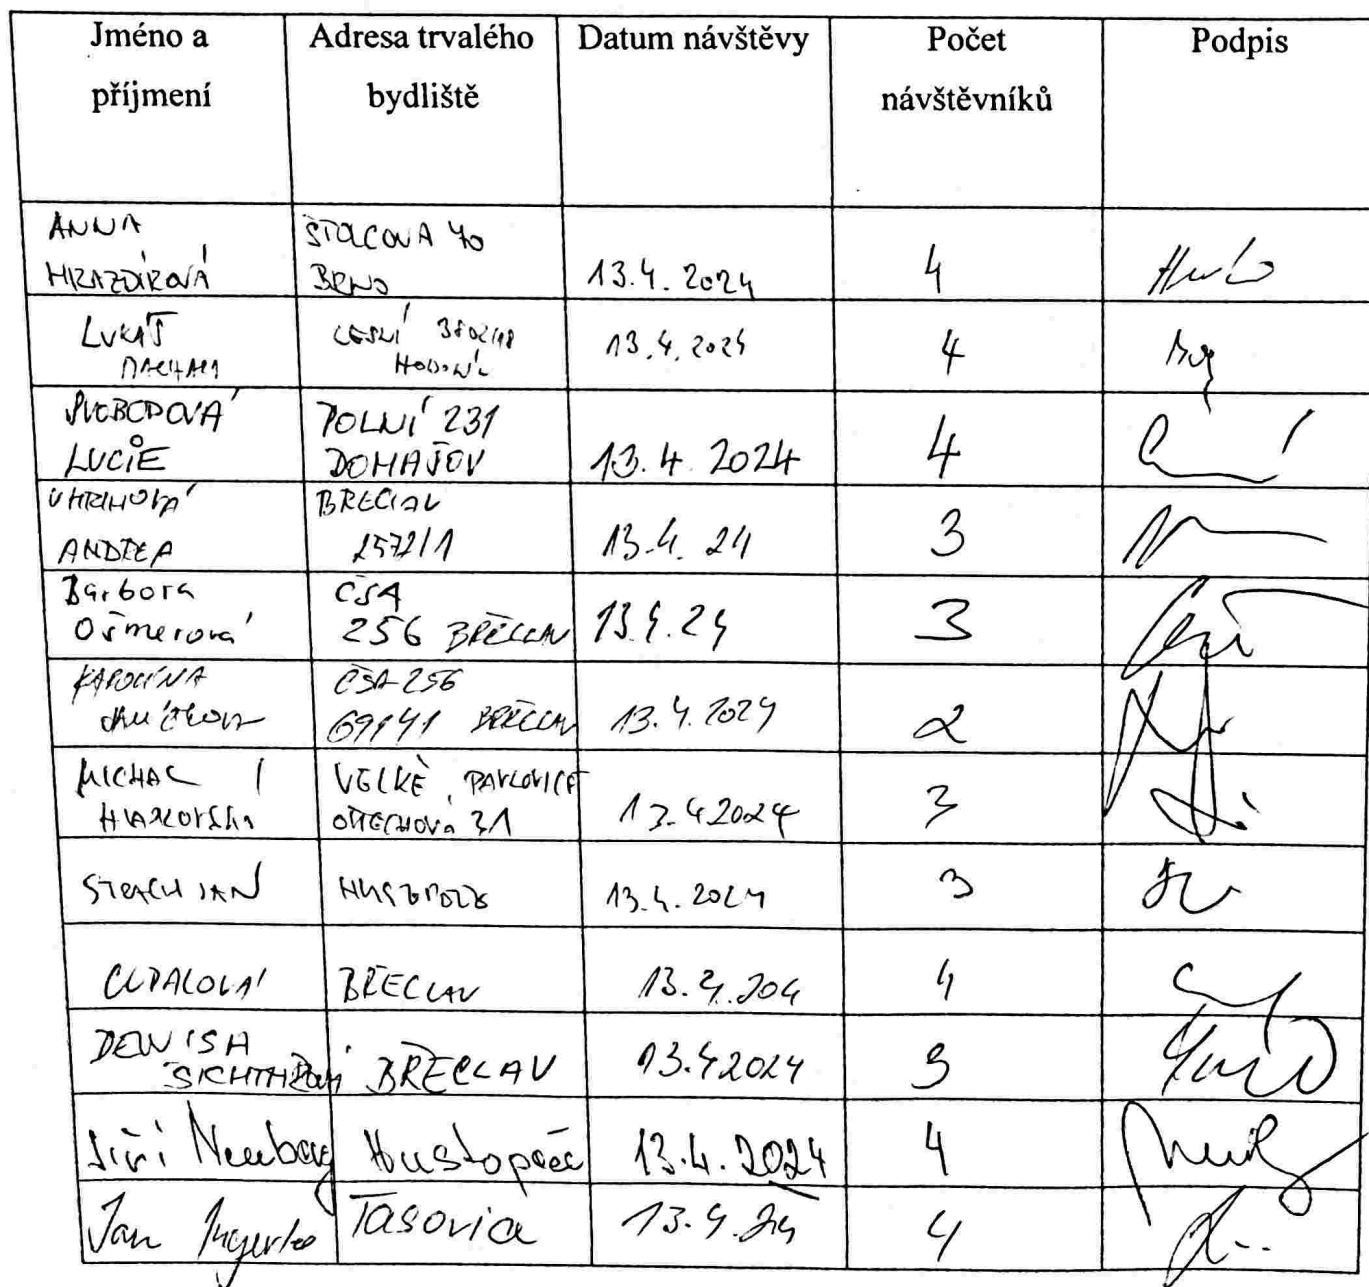 Jméno a
příjmení
Adresa trvalého
bydliště
Datum návštěvy
Počet
návštěvníků
Podpis
ANNA
HRAZDÍROVÁ
ŠTOLCOVA 40
BRNO
13.4.2024
4
LUKÁŠ
LESNÍ
13.4.2024
4
SVOBODOVÁ
LUCIE
POLNÍ 231
DOMAŠOV
13.4.2024
4
UHRINOVÁ
ANDREA
BRECLAV
2572/1
13.4.24
3
Barbora
Ošmerová
ČSA
256 BŘECLAV
13.4.24
3
KAROLÍNA
ČSA 256
69141 BŘECLAV
13.4.2024
2
MICHAL
VELKÉ PAVLOVICE
OŘECHOVA 31
13.4.2024
3
STRACH JAN
13.4.2024
3
CUPALOVÁ
BŘECLAV
13.4.204
4
DENISA
BŘECLAV
13.4.2024
3
Jiří
Hustopeče
13.4.2024
4
Jan
Tasovice
13.4.24
4